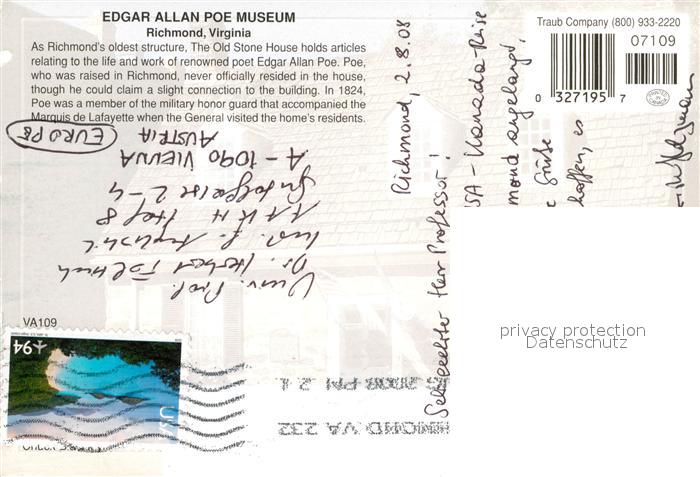 EDGAR ALLAN POE MUSEUM
Richmond, Virginia
As Richmond's oldest structure, The Old Stone House holds articles
relating to the life and work of renowned poet Edgar Allan Poe. Poe,
who was raised in Richmond, never officially resided in the house,
though he could claim a slight connection to the building. In 1824,
Poe was a member of the military honor guard that accompanied the
Marquis de Lafayette when the General visited the home's residents.
Traub Company (800) 933-2220
07109
0 327195 7
PRINTED IN CANADA
Richmond, 2.8.08
Herr Professor!
USA-Kanada-Reise
mond angelangt,
Grüße
hoffen, es
Univ. Prof.
Dr. Herbert
Inst. f. Anglistik
AAKH Hof 8
2-4
A-1090 VIENNA
AUSTRIA
EUROPE
VA109
94
USA
2008 PM 2 L
HMOND VA 232
privacy protection
Datenschutz